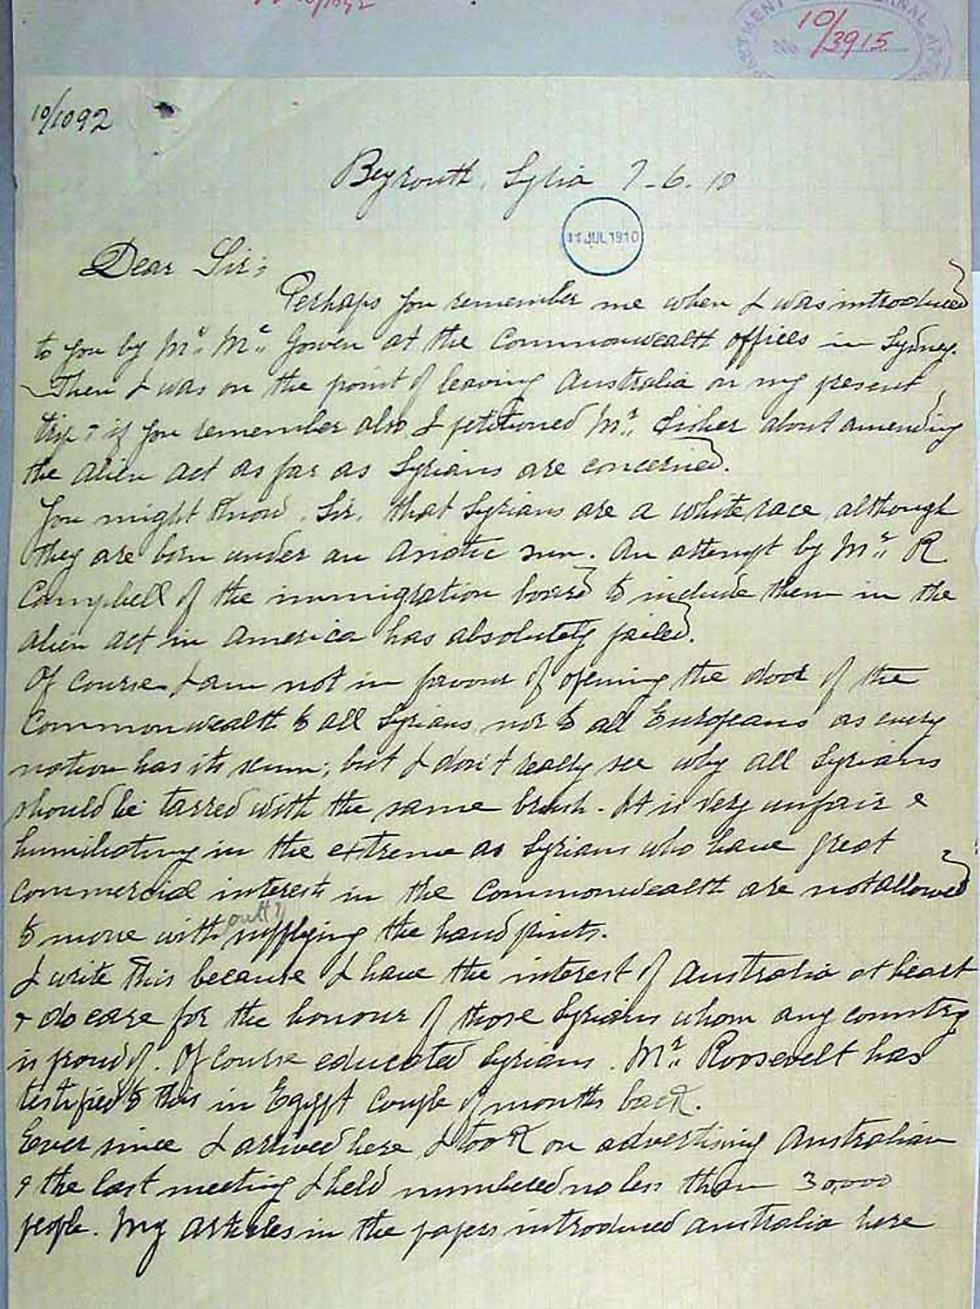 10/3915
10/1092
Beyrouth, Syria 7-6.10
JUL 1910
Dear Sir;
Perhaps you remember me when I was introduced
to you by Mr. Mc. Gowen at the Commonwealth offices in Sydney.
Then I was on the point of leaving Australia on my present
trip & if you remember also I petitioned Mr. Fisher about amending
the alien act as far as Syrians are concerned.
You might know, Sir, that Syrians are a white race although
they are born under an Asiatic sun. An attempt by Mr. R
Campbell of the immigration board to include them in the
alien act in America has absolutely failed.
Of course I am not in favour of opening the door of the
Commonwealth to all Syrians, nor to all Europeans as every
nation has its scum; but I don't really see why all Syrians
should be tarred with the same brush. It is very unfair &
humiliating in the extreme as Syrians who have great
commercial interests in the Commonwealth are not allowed
to move without supplying the hand prints.
I write this because I have the interest of Australia at heart
& do care for the honour of those Syrians whom any country
is proud of. Of course educated Syrians. Mr. Roosevelt has
testified to this in Egypt couple of months back.
Ever since I arrived here I took on advertising Australian
& the last meeting I held numbered no less than 30,000
people. My articles in the papers introduced Australia here